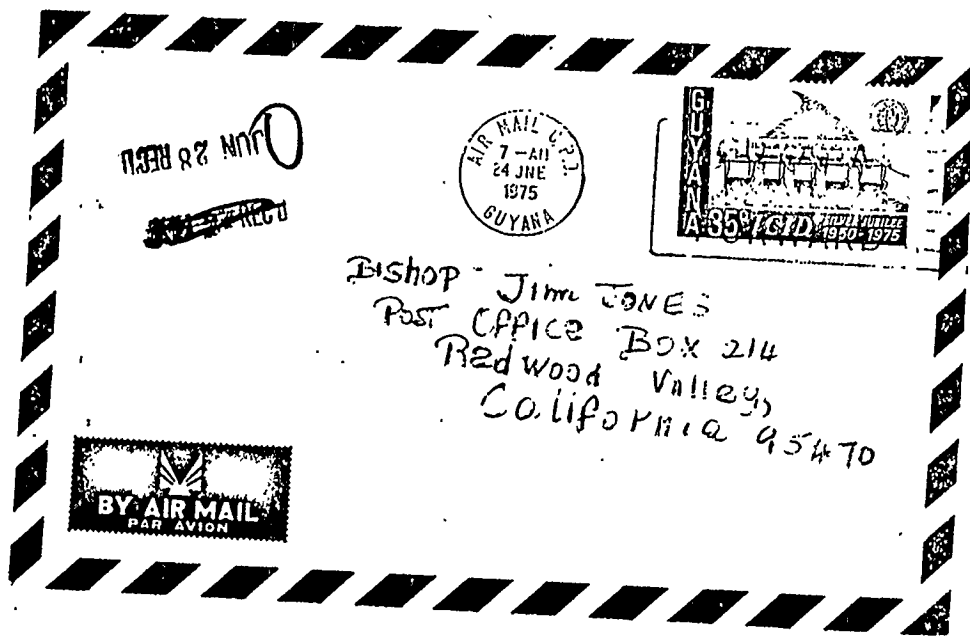 JUN 28 REC'D
REC'D
AIR MAIL G.P.O.
7 - AM
24 JNE
1975
GUYANA
GUYANA
35¢ SILVER JUBILEE
1950-1975
Bishop Jim JONES
Post Office Box 214
Redwood Valley,
California 95470
BY AIR MAIL
PAR AVION